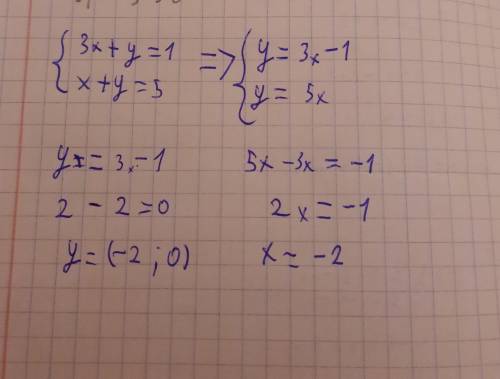 { 3x + y = 1 => { y = 3x - 1
x + y = 5 y = 5x
yx = 3x - 1 5x - 3x = -1
2 - 2 = 0 2x = -1
y = (-2 ; 0) x = -2